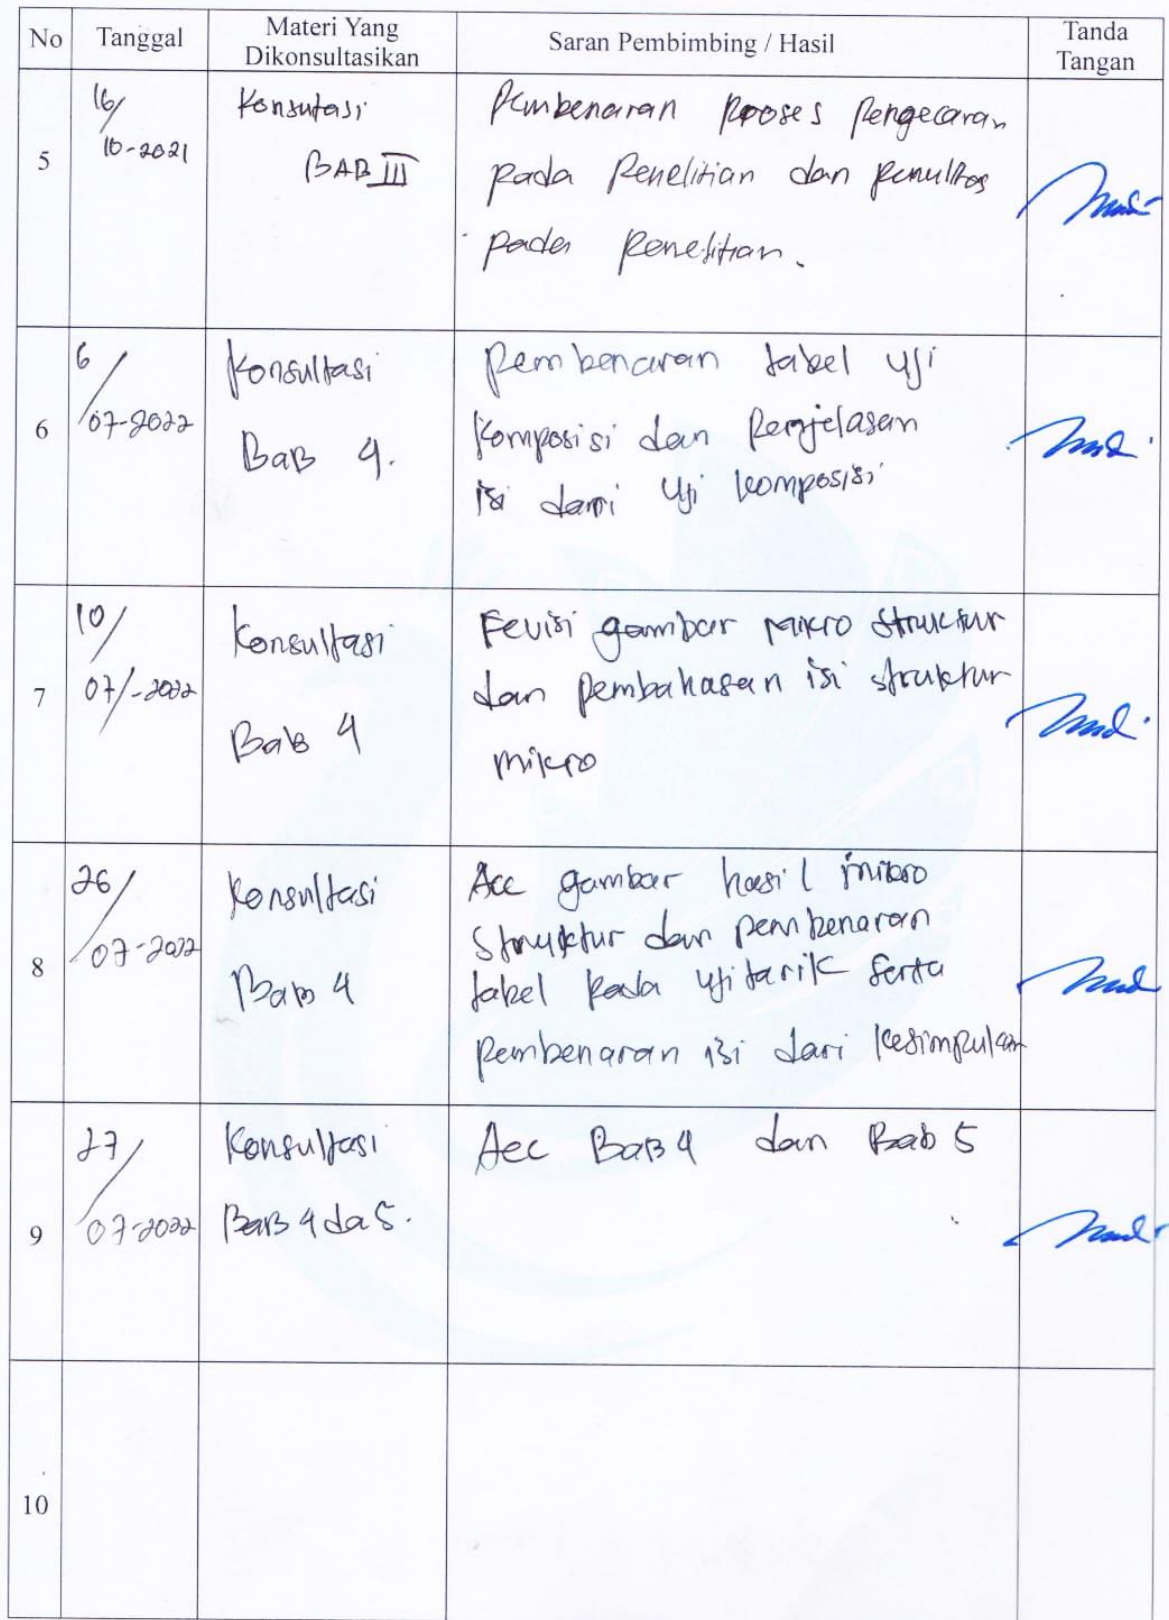 No Tanggal Materi Yang Dikonsultasikan Saran Pembimbing / Hasil Tanda Tangan
5
16/
10-2021
Konsutasi
BAB III
Pembenaran Proses Pengecoran
pada Penelitian dan
pada Penelitian.
6
6/
07-2022
Konsultasi
BaB 4.
Pembenaran tabel uji
Komposisi dan Penjelasan
isi dari Uji komposisi
7
10/
07/-2022
Konsultasi
Bab 4
Revisi gambar Mikro struktur
dan pembahasan isi struktur
mikro
8
26/
07-2022
Konsultasi
Bab 4
Acc gambar hasil mikro
Struktur dan pembenaran
tabel pada uji tarik serta
pembenaran isi dari kesimpulan
9
27/
07-2022
Konsultasi
BaB 4 da 5.
Acc BaB 4 dan Bab 5
10